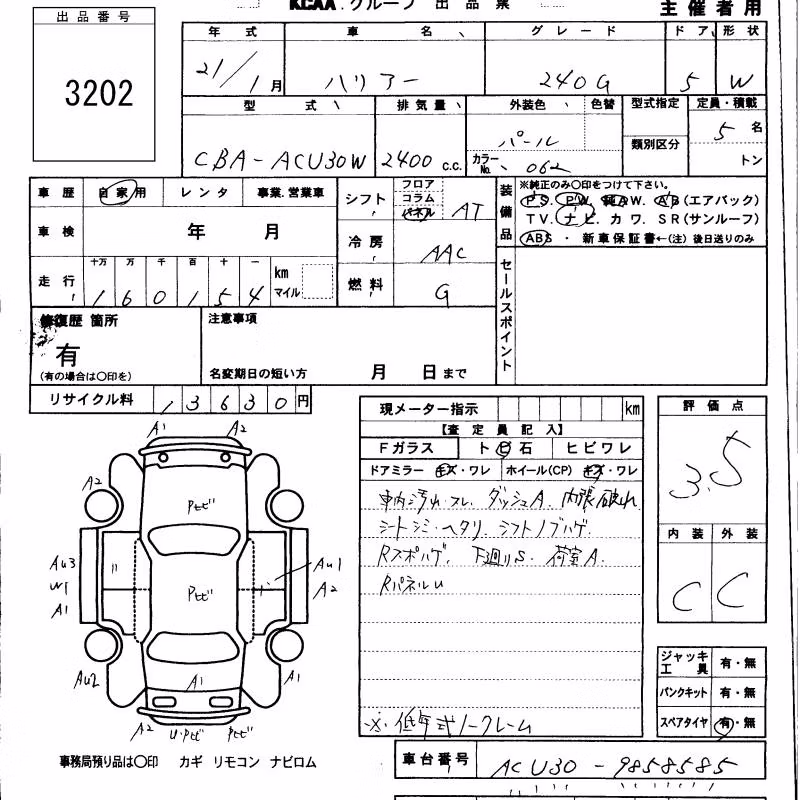 KCAA.グループ 出品票
主催者用
出品番号
3202
年式 車名 グレード ドア 形状
21/1月 ハリアー 240G 5 W
型式 排気量 外装色 色替 型式指定 定員・積載
類別区分
CBA-ACU30W 2400c.c. パール 5名
カラーNo. 062 トン
車歴 自家用 レンタ 事業.営業車
シフト フロア コラム パネル AT
装備品 ※純正のみ○印をつけて下さい。
P S. P W. 純A W. A B(エアバック)
T V. ナ ビ. カ ワ. S R(サンルーフ)
ABS・ 新車保証書←(注) 後日送りのみ
車検 年 月
冷房 AAC
走行 十万 万 千 百 十 一 km マイル
160154
燃料 G
セールスポイント
修復歴 箇所
有
(有の場合は○印を)
注意事項
名変期日の短い方 月 日まで
リサイクル料 13630円
現メーター指示 km
評価点
3.5
【査定員記入】
Fガラス ト ビ 石 ヒビワレ
ドアミラー キズ・ワレ ホイール(CP) キズ・ワレ
車内汚れ・スレ. ダッシュA. 内張破れ
シートシミ・ヘタリ. シフトノブハゲ.
Rスポハゲ. 下廻りS. 荷室A.
RパネルU
※低年式ノークレーム
内装 外装
C C
A1 A2
A2
Pとビ
Au3 Au1
W1 Pとビ A2
A1
Au2 A1 A1
A2 U・Pとビ Pとビ
ジャッキ工具 有・無
パンクキット 有・無
スペアタイヤ 有・無
事務局預り品は○印 カギ リモコン ナビロム
車台番号 ACU30-9858585